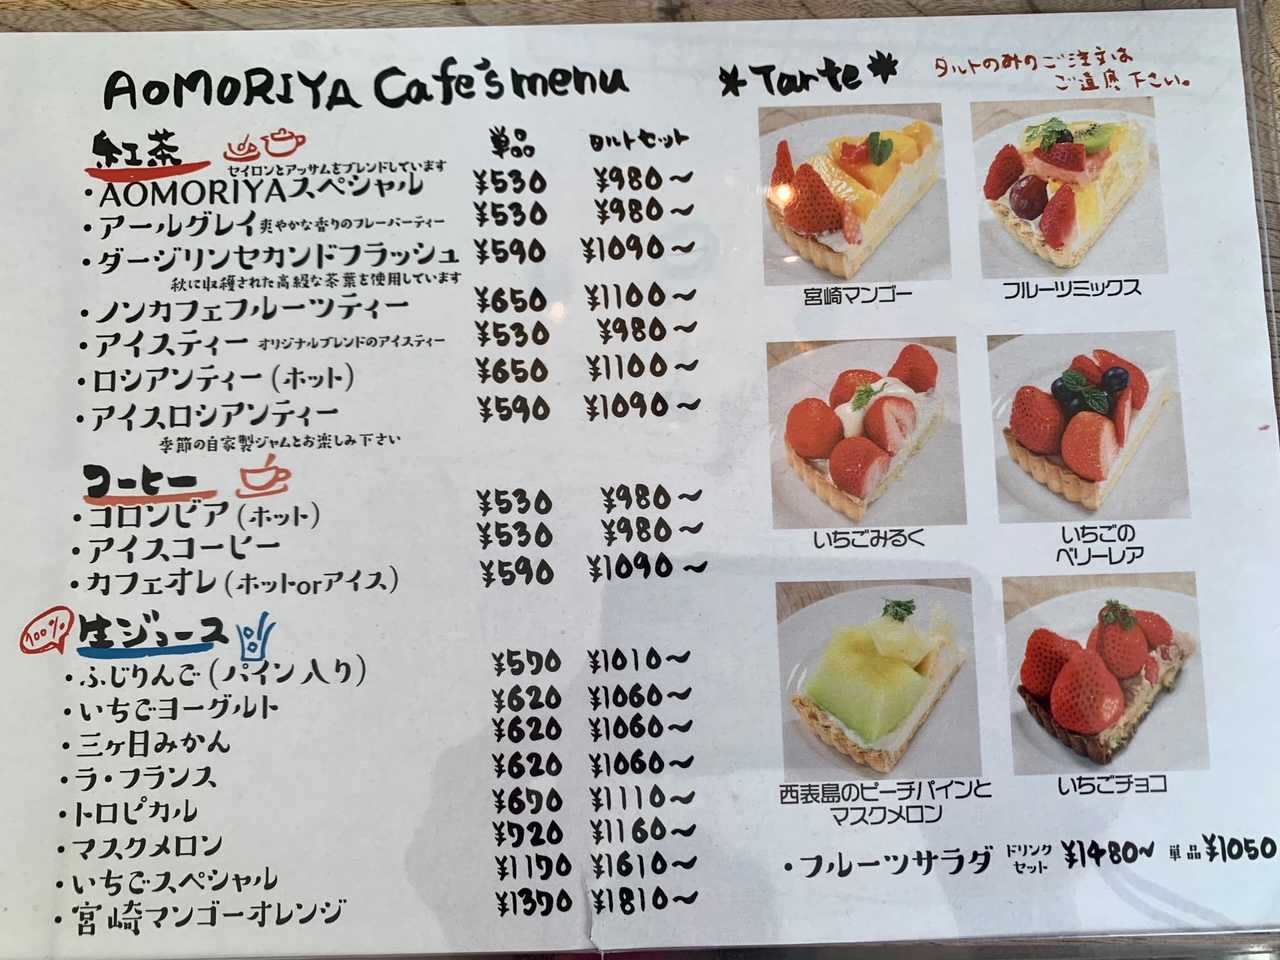 AOMORIYA Cafe's menu
*Tarte*
タルトのみのご注文は
ご遠慮下さい。
紅茶
単品
タルトセット
セイロンとアッサムをブレンドしています
・AOMORIYAスペシャル ¥530 ¥980～
・アールグレイ 爽やかな香りのフレーバーティー ¥530 ¥980～
・ダージリンセカンドフラッシュ ¥590 ¥1090～
秋に収穫された高級な茶葉を使用しています
・ノンカフェフルーツティー ¥650 ¥1100～
・アイスティー オリジナルブレンドのアイスティー ¥530 ¥980～
・ロシアンティー(ホット) ¥650 ¥1100～
・アイスロシアンティー ¥590 ¥1090～
季節の自家製ジャムとお楽しみ下さい
コーヒー
・コロンビア(ホット) ¥530 ¥980～
・アイスコーヒー ¥530 ¥980～
・カフェオレ(ホットorアイス) ¥590 ¥1090～
100%
生ジュース
・ふじりんご(パイン入り) ¥570 ¥1010～
・いちごヨーグルト ¥620 ¥1060～
・三ヶ日みかん ¥620 ¥1060～
・ラ・フランス ¥620 ¥1060～
・トロピカル ¥670 ¥1110～
・マスクメロン ¥720 ¥1160～
・いちごスペシャル ¥1170 ¥1610～
・宮崎マンゴーオレンジ ¥1370 ¥1810～
宮崎マンゴー
フルーツミックス
いちごみるく
いちごの
ベリーレア
西表島のピーチパインと
マスクメロン
いちごチョコ
・フルーツサラダ ドリンクセット ¥1480～ 単品 ¥1050